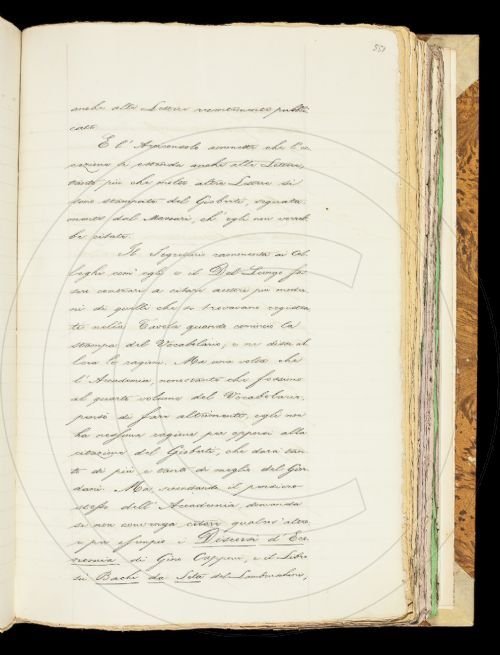 551
anche alle Lettere recentemente pubbli
cate.
E l'Arciconsolo ammette che l'ec
cezione si estenda anche alle Lettere,
tanto più che molte altre Lettere si
sono stampate del Gioberti, segnata
mente dal Massari, ch'egli non vorreb
be citate.
Il Segretario rammenta ai Col
leghi com'egli e il Del Lungo fos
sero contrari a citare autori più moder
ni di quelli che si trovavano registra
ti nella Tavola quando cominciò la
stampa del Vocabolario, e ne disse al
lora le ragioni. Ma una volta che
l'Accademia, nonostante che fossimo
al quarto volume del Vocabolario,
pensò di fare altrimenti, egli non
ha nessuna ragione per opporsi alla
citazione del Gioberti, che darà tan
to di più e tanto di meglio del Gior
dani. Ma, secondando il pensiero
stesso dell'Accademia, domanda
se non convenga citare qualcos'altro,
e per esempio i Discorsi d'Eco
nomia di Gino Capponi, e il Libro
sui Bachi da Seta del Lambruschini,